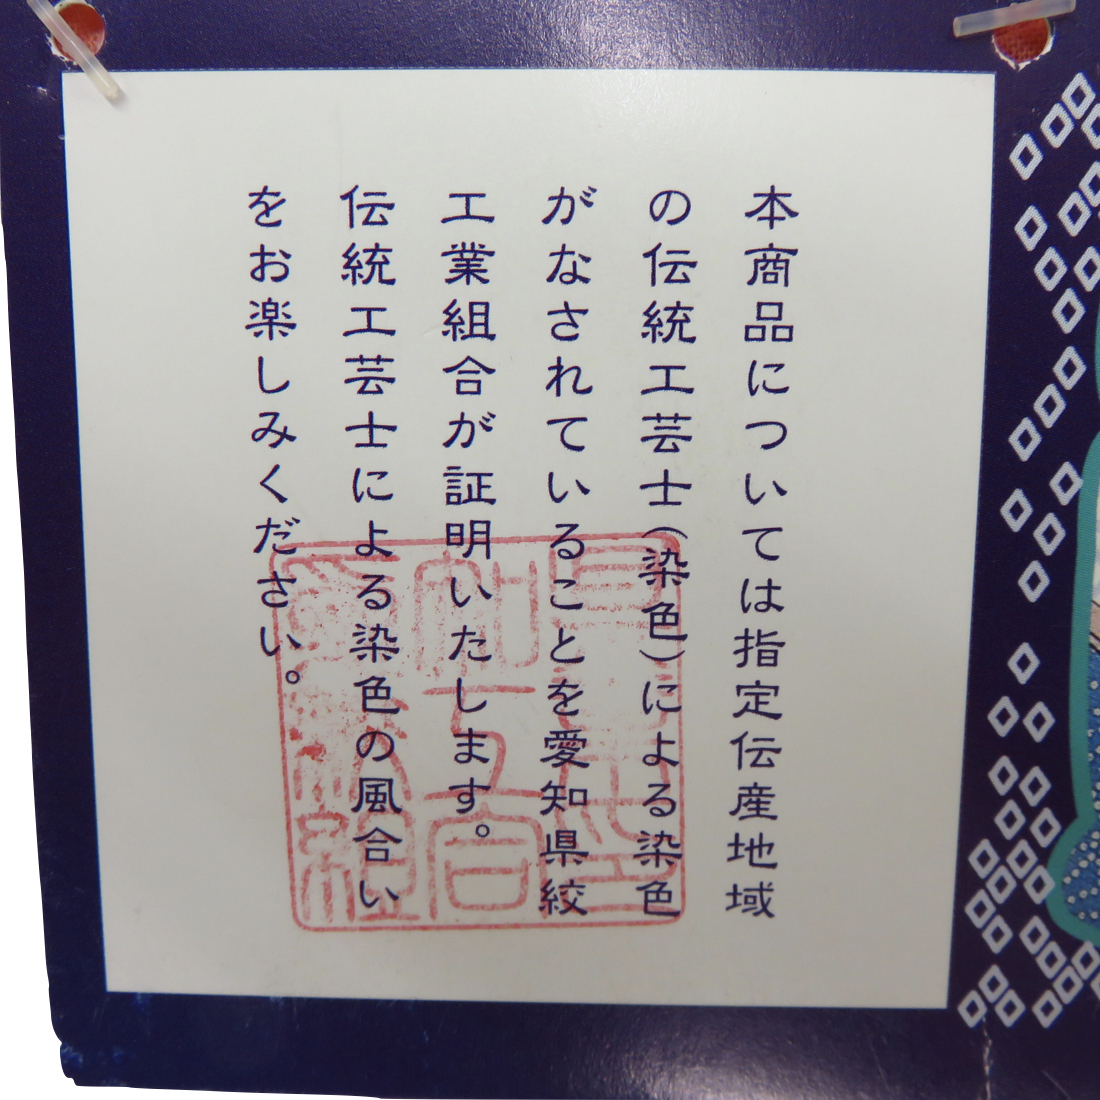 本商品については指定伝産地域
の伝統工芸士(染色)による染色
がなされていることを愛知県絞
工業組合が証明いたします。
伝統工芸士による染色の風合い
をお楽しみください。